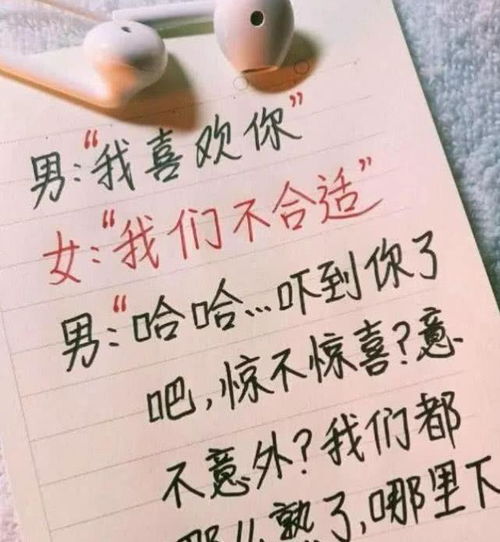 男:“我喜欢你”
女:“我们不合适”
男:“哈哈...吓到你了
吧,惊不惊喜?意
不意外?我们都
那么熟了,哪里下